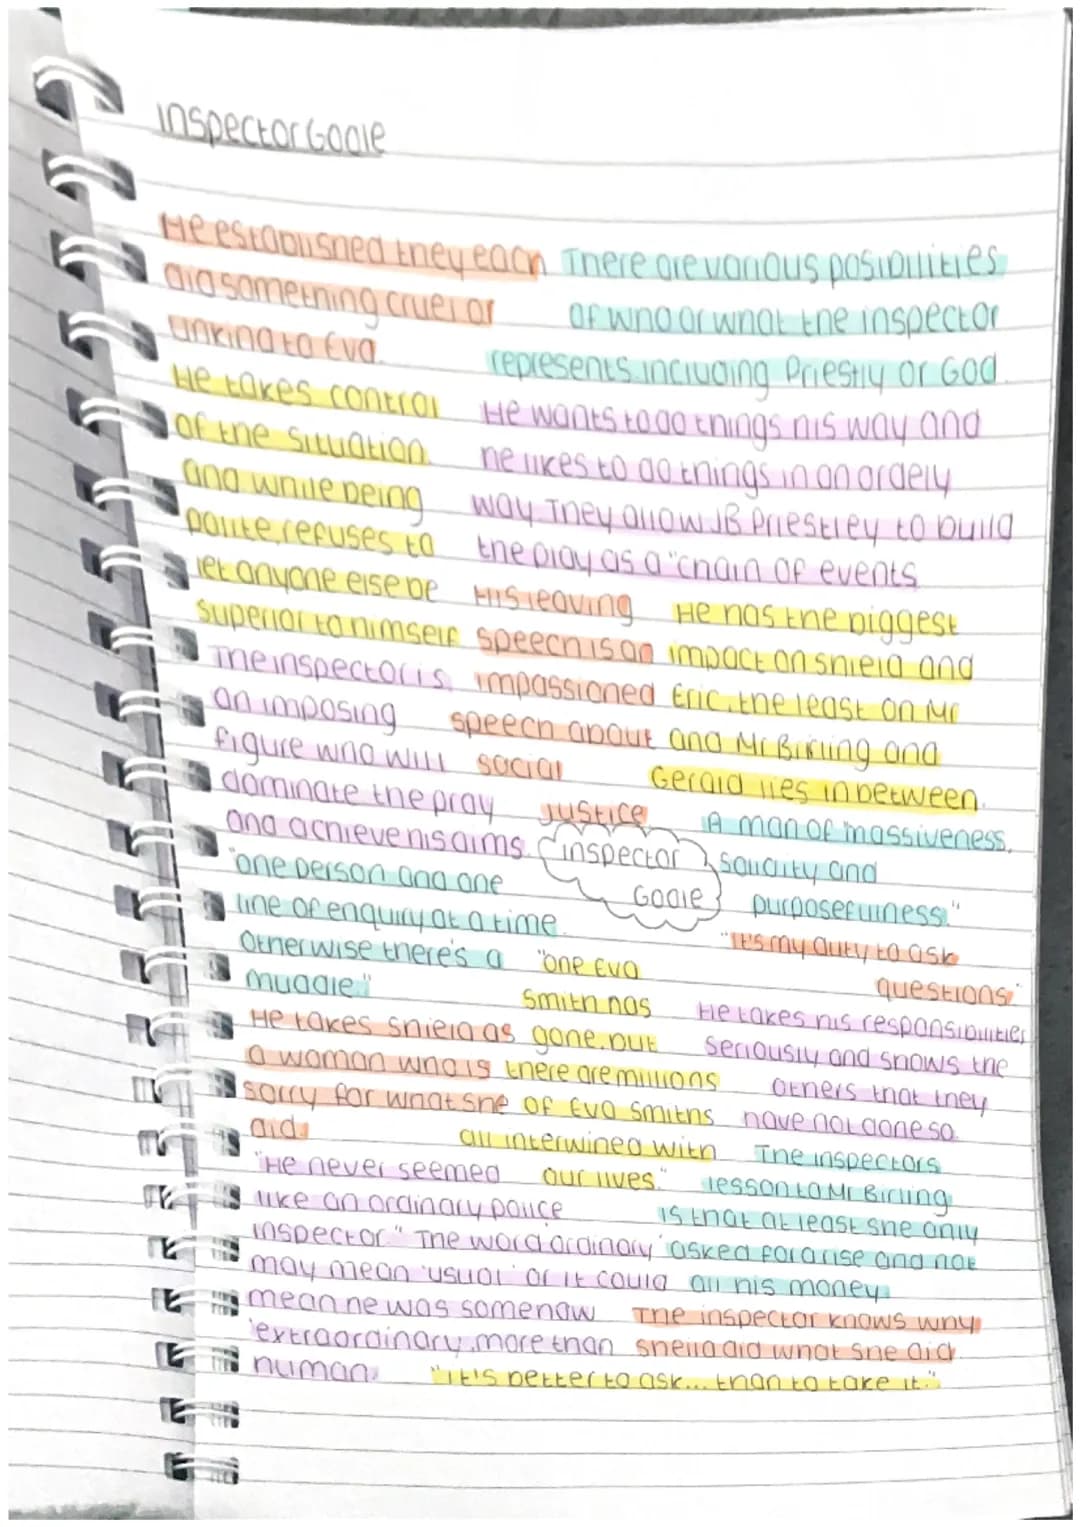 Inspector Goole
He established they each
did something cruel or
unkind to Eva.
There are various posibilities
of who or what the inspector
represents. including Priestly or God.
He takes control
of the situation
and while being
polite, refuses to
let anyone else be
superior to himself
He wants to do things his way and
he likes to do things in an ordely
way. They allow JB Priestley to build
the play as a "chain of events
The inspector is
an imposing
figure who will
dominate the play
and achieve his aims.
His leaving
speech is an
impassioned
speech about
social
justice
He has the biggest
impact on Shiela and
Eric, the least on Mr
and Mr Birling and
Gerald lies in between.
Inspector
Goole
A man of "massiveness,
Solidity and
purposefulness."
"one person and one
line of enquiry at a time.
Otherwise there's a
muddle."
"It's my duty to ask
questions"
"one Eva
Smith has
gone. but
there are millions
of Eva Smiths
all interwined with
our lives."
He takes his responsibilities
seriously and shows the
others that they
have not done so.
He takes Shiela as
a woman who is
sorry for what she
did.
The inspectors
lesson to Mr Birling
is that at least she only
asked for a rise and not
all his money.
"He never seemed
like an ordinary police
inspector." The word ordinary'
may mean 'usual' or it could
mean he was somehow
'extraordinary, more than
human.
The inspector knows why
sheila did what she did
"It's better to ask... than to take it."